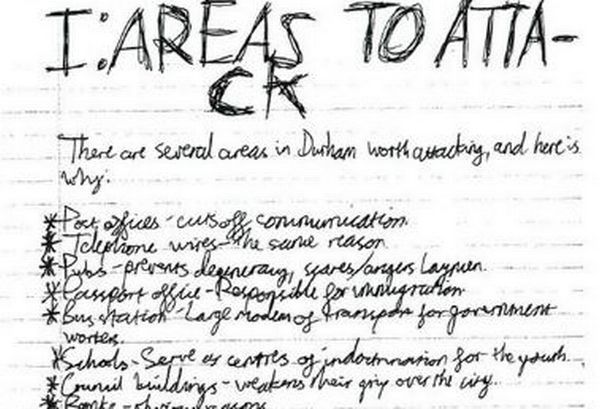 I: AREAS TO ATTA-
CK
There are several areas in Durham worth attacking, and here is
why:
* Post offices - cuts off communication
* Telephone wires - the same reason
* Pubs - prevents degeneracy, scares/angers laymen.
* Passport office - Responsible for immigration
* Bus station - Large modem of transport for government
workers.
* Schools - Serve as centres of indoctrination for the youth.
* Council buildings - weakens their grip over the city.
* Banks - obvious reasons